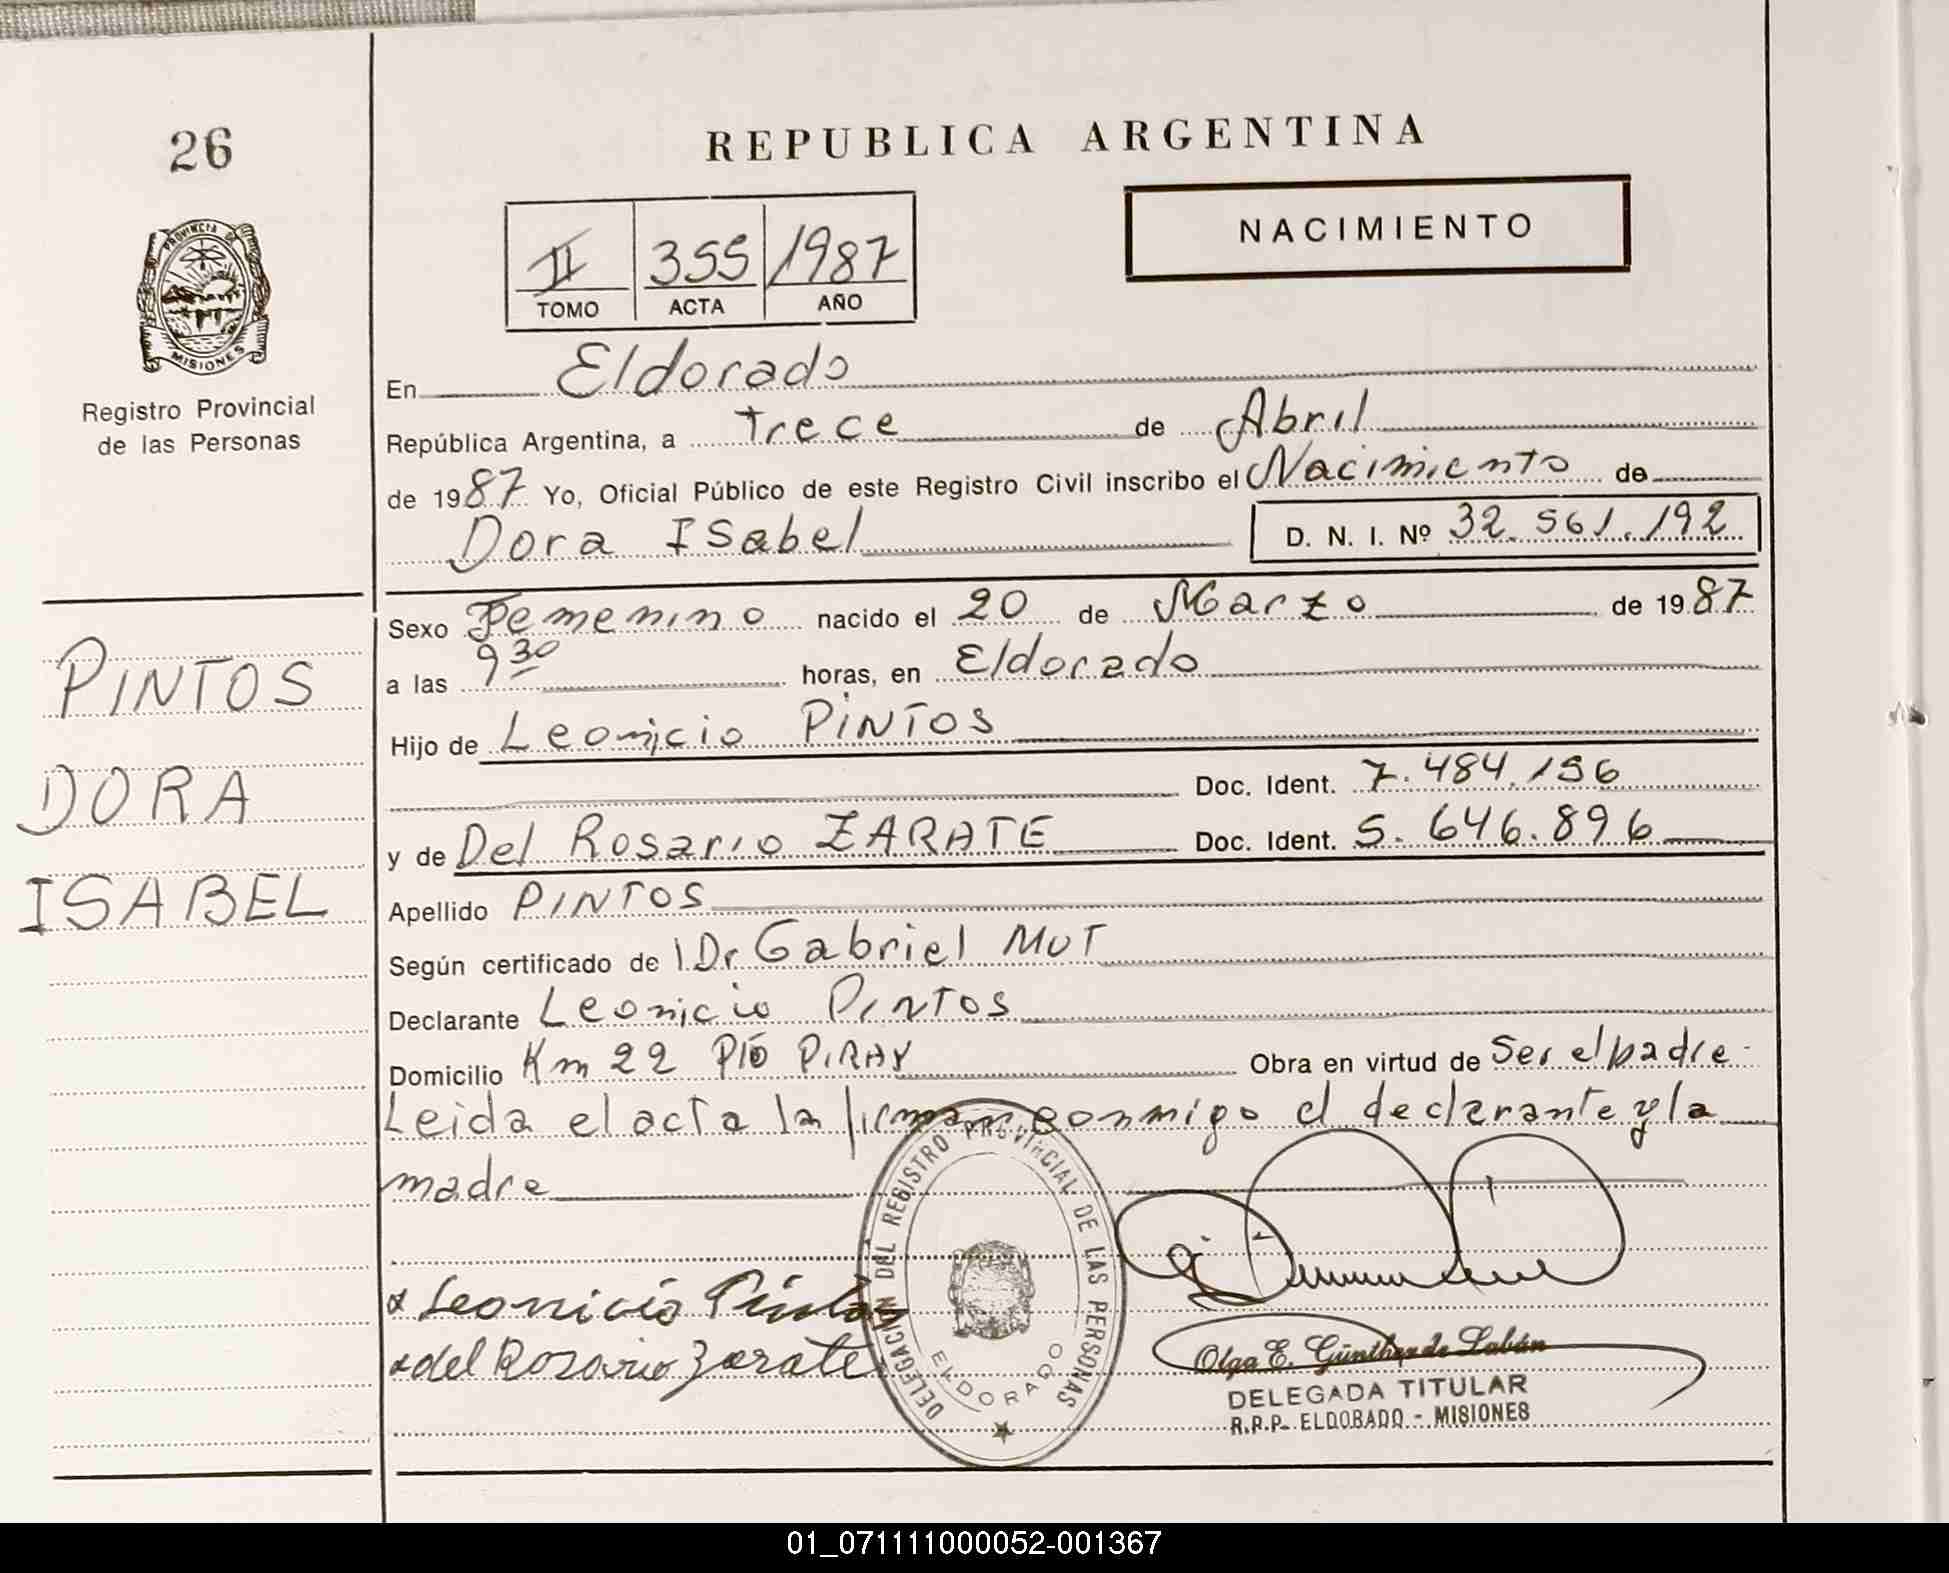 26
REPUBLICA ARGENTINA
NACIMIENTO
II 355 1987
TOMO ACTA AÑO
PROVINCIA DE
MISIONES
Registro Provincial
de las Personas
En Eldorado
República Argentina, a Trece de Abril
de 1987 Yo, Oficial Público de este Registro Civil inscribo el Nacimiento de
Dora ISabel D. N. I. Nº 32.561.192
Sexo Femenino nacido el 20 de Marzo de 1987
a las 9 30 horas, en Eldorado
Hijo de Leonicio PINTOS
Doc. Ident. 7.484.156
y de Del Rosario ZARATE Doc. Ident. 5.646.896
Apellido PINTOS
Según certificado de Dr Gabriel MUT
Declarante Leonicio PINTOS
Domicilio Km 22 PTO PIRAY Obra en virtud de Ser el padre
Leida el acta la firman conmigo el declarante y la
madre
PINTOS
DORA
ISABEL
Leonicio Pintos
del Rosario Zarate
DELEGACION DEL REGISTRO PROVINCIAL DE LAS PERSONAS
ELDORADO
Olga E. Günther de Labán
DELEGADA TITULAR
R.P.P- ELDORADO - MISIONES
01_071111000052-001367